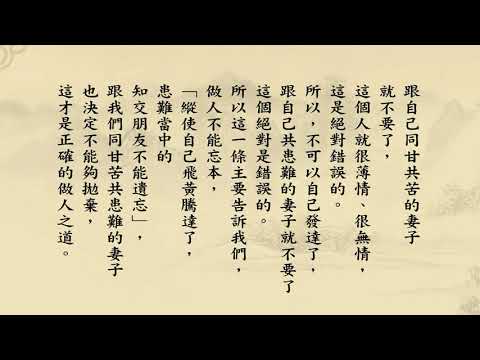 跟自己同甘共苦的妻子
就不要了，
這個人就很薄情、很無情，
這是絕對錯誤的。
所以，不可以自己發達了，
跟自己共患難的妻子就不要了
這個絕對是錯誤的。
所以這一條主要告訴我們，
做人不能忘本，
「縱使自己飛黃騰達了，
患難當中的
知交朋友不能遺忘」，
跟我們同甘苦共患難的妻子
也決定不能夠拋棄，
這才是正確的做人之道。